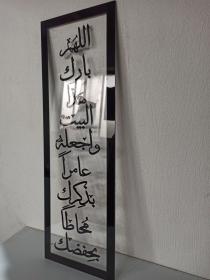 اللهم
بارك
هذا
البيت
واجعله
عامراً
بذكرك
مُحاطاً
بحفظك